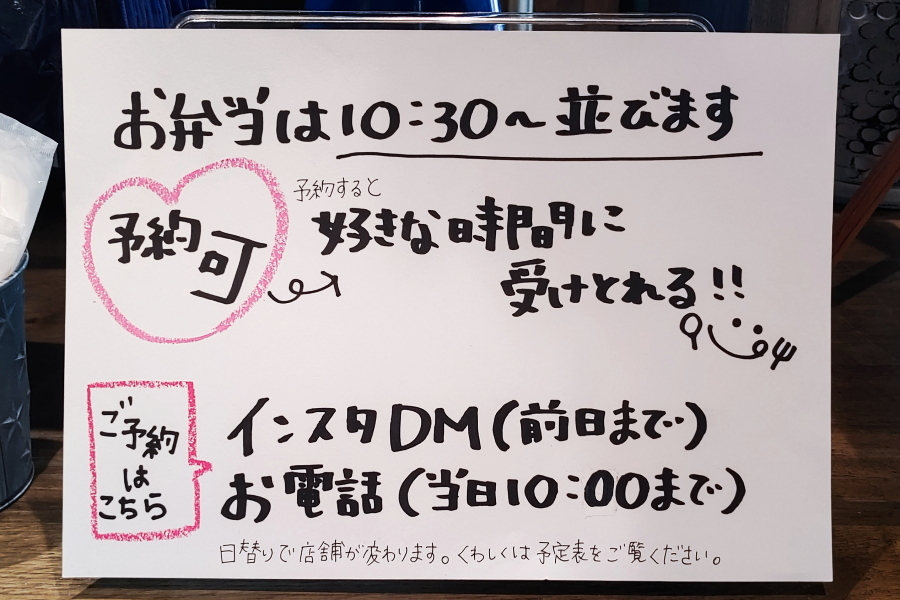 お弁当は10:30~並びます
予約可
予約すると
好きな時間に
受けとれる!!
ご予約
は
こちら
インスタDM(前日まで)
お電話(当日10:00まで)
日替りで店舗が変わります。くわしくは予定表をご覧ください。